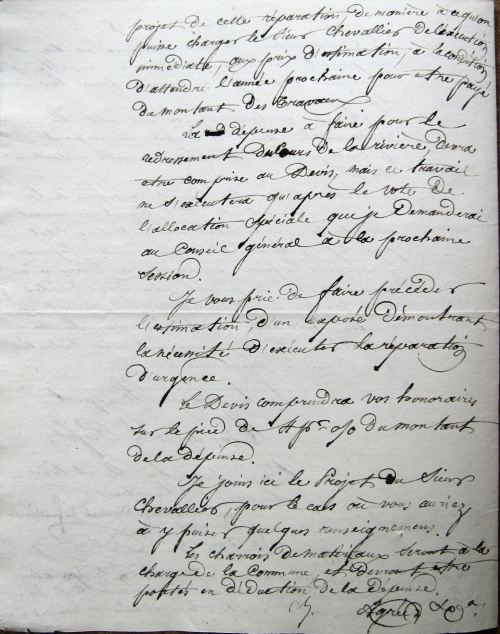 projet de cette réparation, de manière à ce qu'on
puisse charger le Sieur Chevallier de l'exécution
immédiate, aux prix d'estimation, à la condition
d'attendre l'année prochaine pour être payé
du montant des travaux
La dépense à faire pour le
redressement du Cours de la rivière, devra
être comprise au Devis, mais ce travail
ne s'exécutera qu'après le vote de
l'allocation spéciale que je demanderai
au Conseil général à la prochaine
session.
Je vous prie de faire précéder
l'estimation, d'un exposé démontrant
la nécessité d'exécuter la réparation
d'urgence.
Le Devis comprendra vos honoraires
sur le pied de 4 pr. o/o du montant
de la dépense.
Je joins ici le Projet du Sieur
Chevallier, pour le cas où vous auriez
à y puiser quelques renseignemens.
Les charrois de matériaux seront à la
charge de la Commune, et devront être
portés en déduction de la dépense.
Agréez &a.